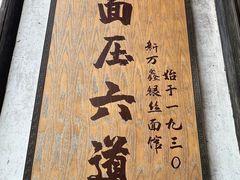 面压六道
新万鑫银丝面馆
始于一九三〇